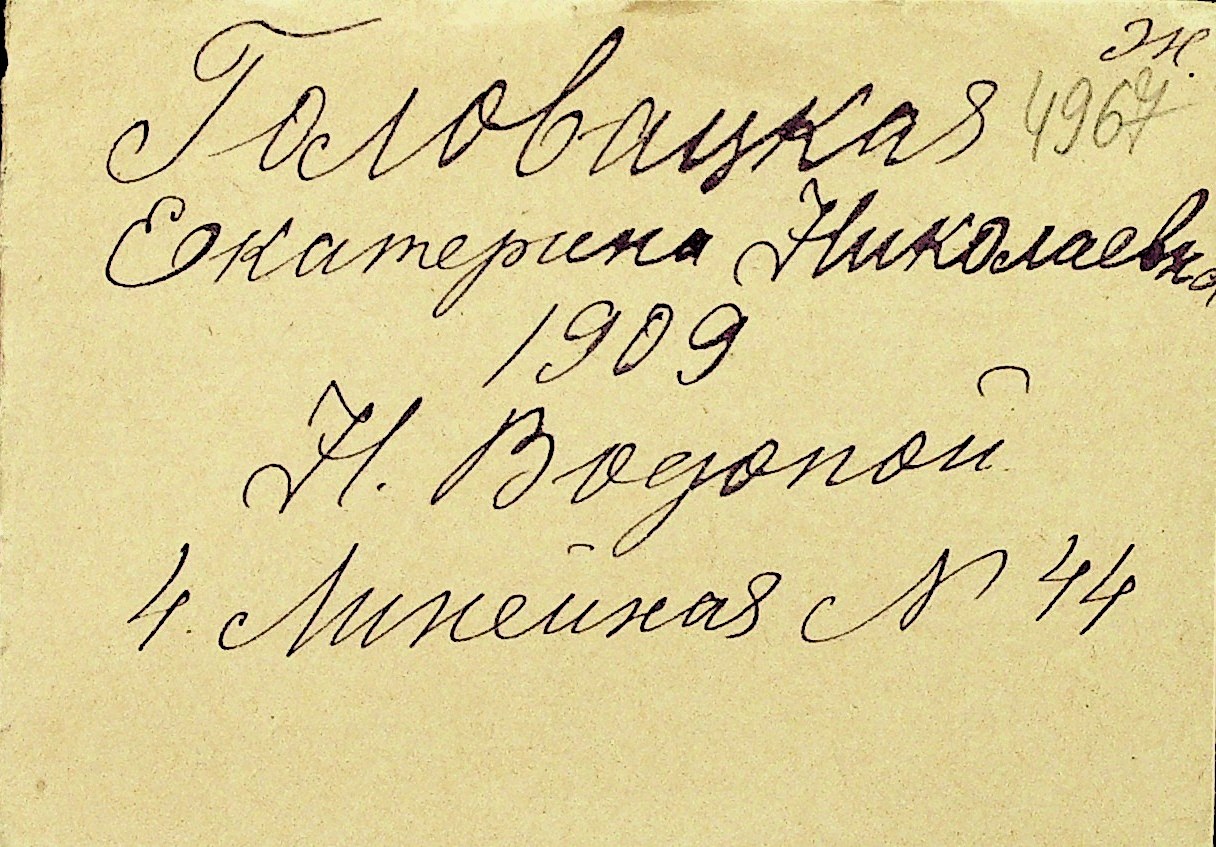 ж.
Головацкая 4967
Екатерина Николаевна
1909
Н. Водопой
4. Линейная N 44